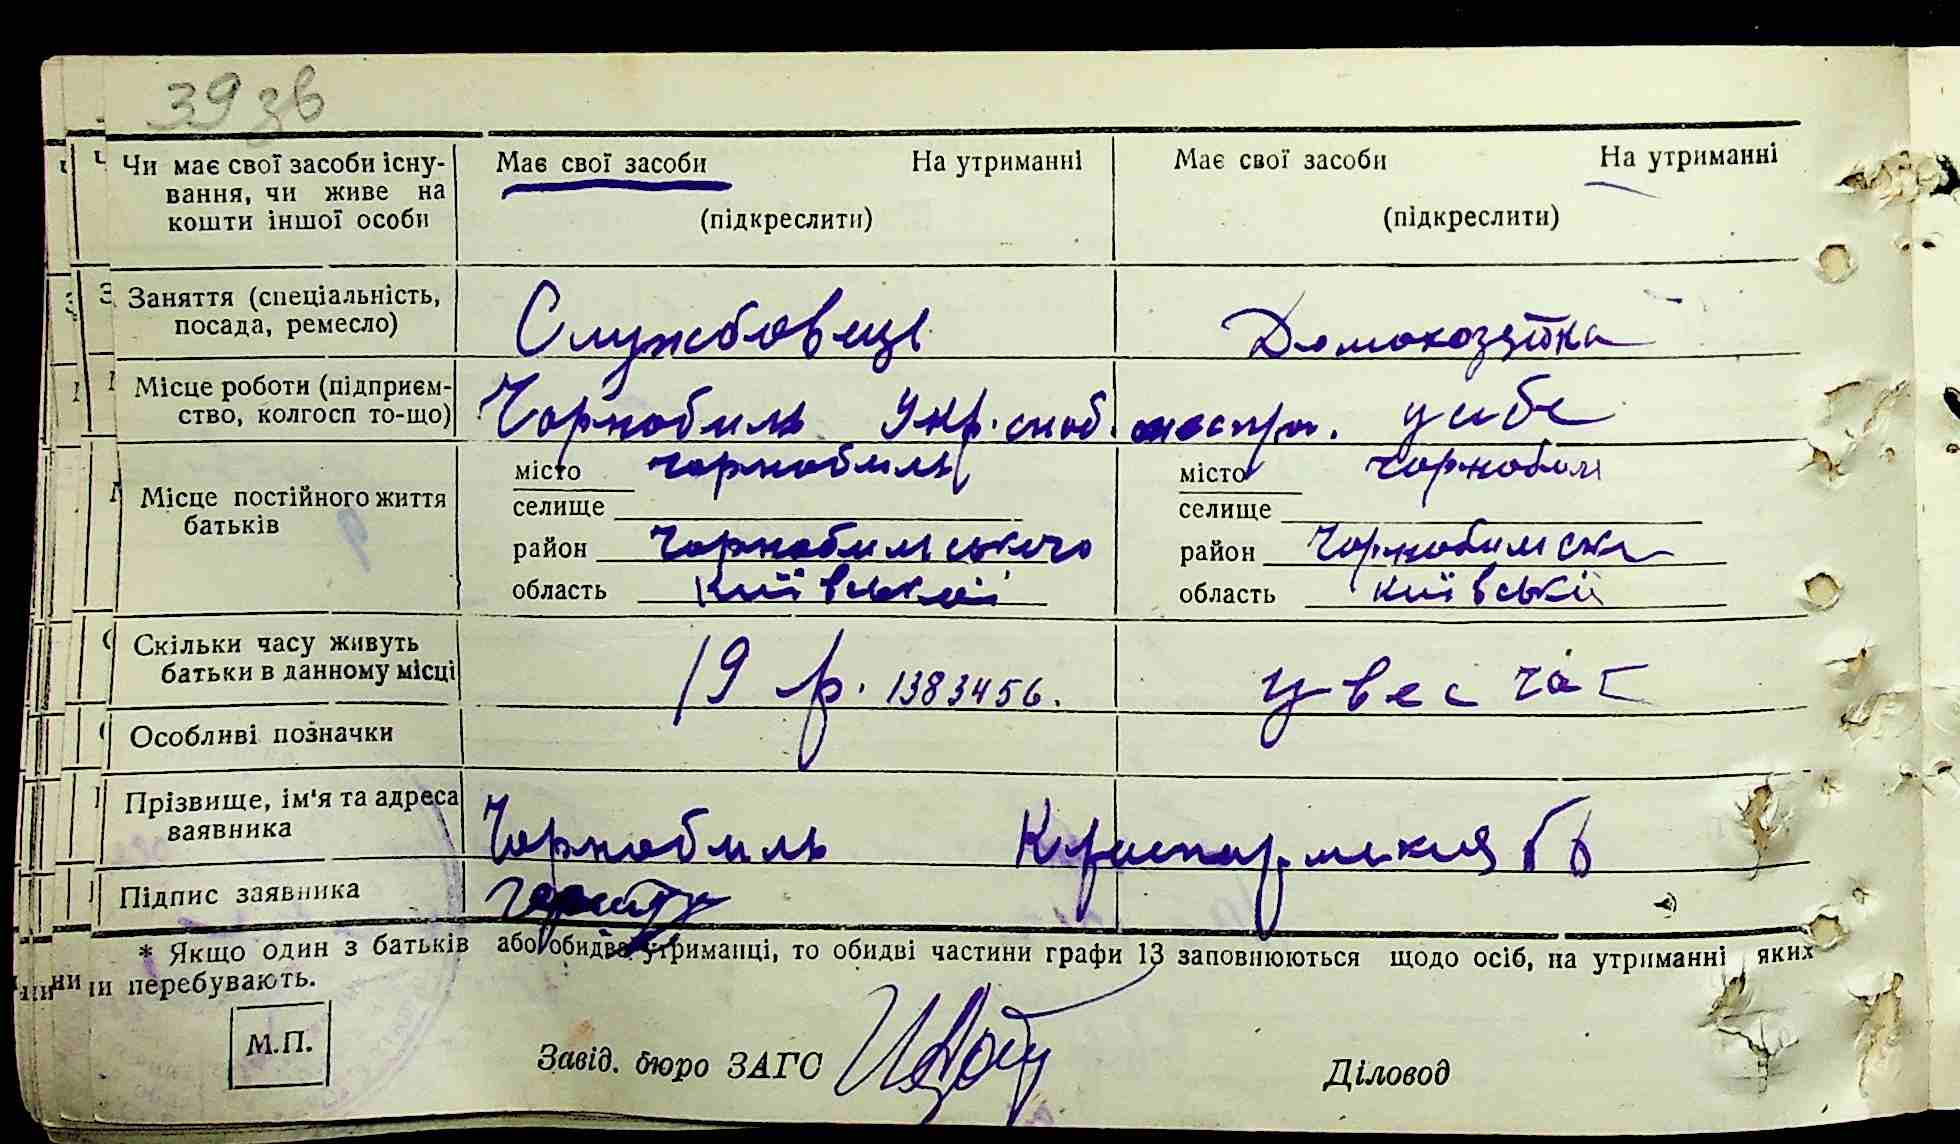 39 зв
Чи має свої засоби існу- Має свої засоби На утриманні Має свої засоби На утриманні
вання, чи живе на
кошти іншої особи (підкреслити) (підкреслити)
Заняття (спеціальність, Службовець Домохозяйка
посада, ремесло)
Місце роботи (підприєм- Чорнобиль Укр. снаб.
ство, колгосп то-що)
місто Чорнобиль місто Чорнобиль
Місце постійного життя селище селище
батьків
район Чорнобильського район Чорнобильськ
область Київської область Київській
Скільки часу живуть 19 р. 1383456. увесь час
батьки в данному місці
Особливі позначки
Прізвище, ім'я та адреса Чорнобиль
заявника
Підпис заявника
* Якщо один з батьків або обидва утриманці, то обидві частини графи 13 заповнюються щодо осіб, на утриманні яких
ни перебувають.
М.П.
Завід. бюро ЗАГС Діловод